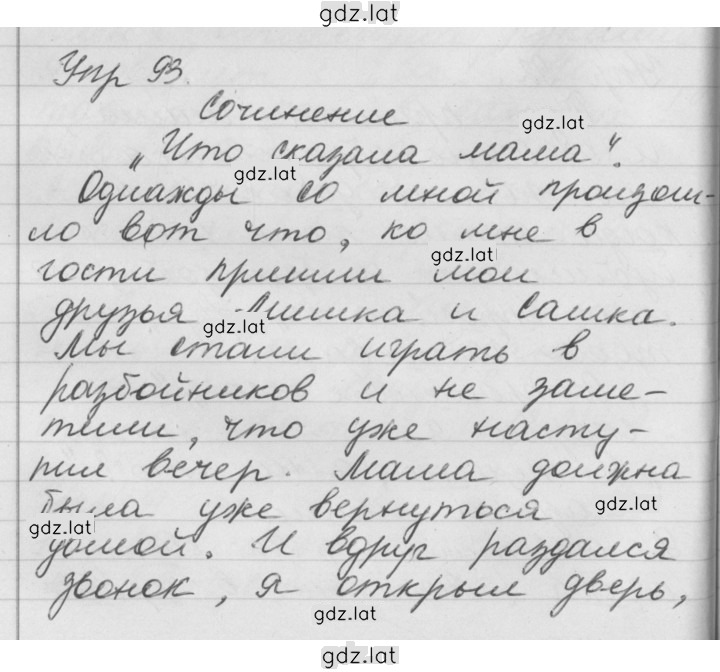 gdz.lat
Упр 93.
Сочинение
gdz.lat
„Что сказала мама".
gdz.lat
Однажды со мной произош-
ло вот что, ко мне в
гости пришли мои
gdz.lat
друзья Мишка и Сашка.
gdz.lat
Мы стали играть в
разбойников и не заме-
тили, что уже насту-
пил вечер. Мама должна
была уже вернуться
gdz.lat
gdz.lat
домой. И вдруг раздался
звонок, я открыл дверь,
gdz.lat
gdz.lat